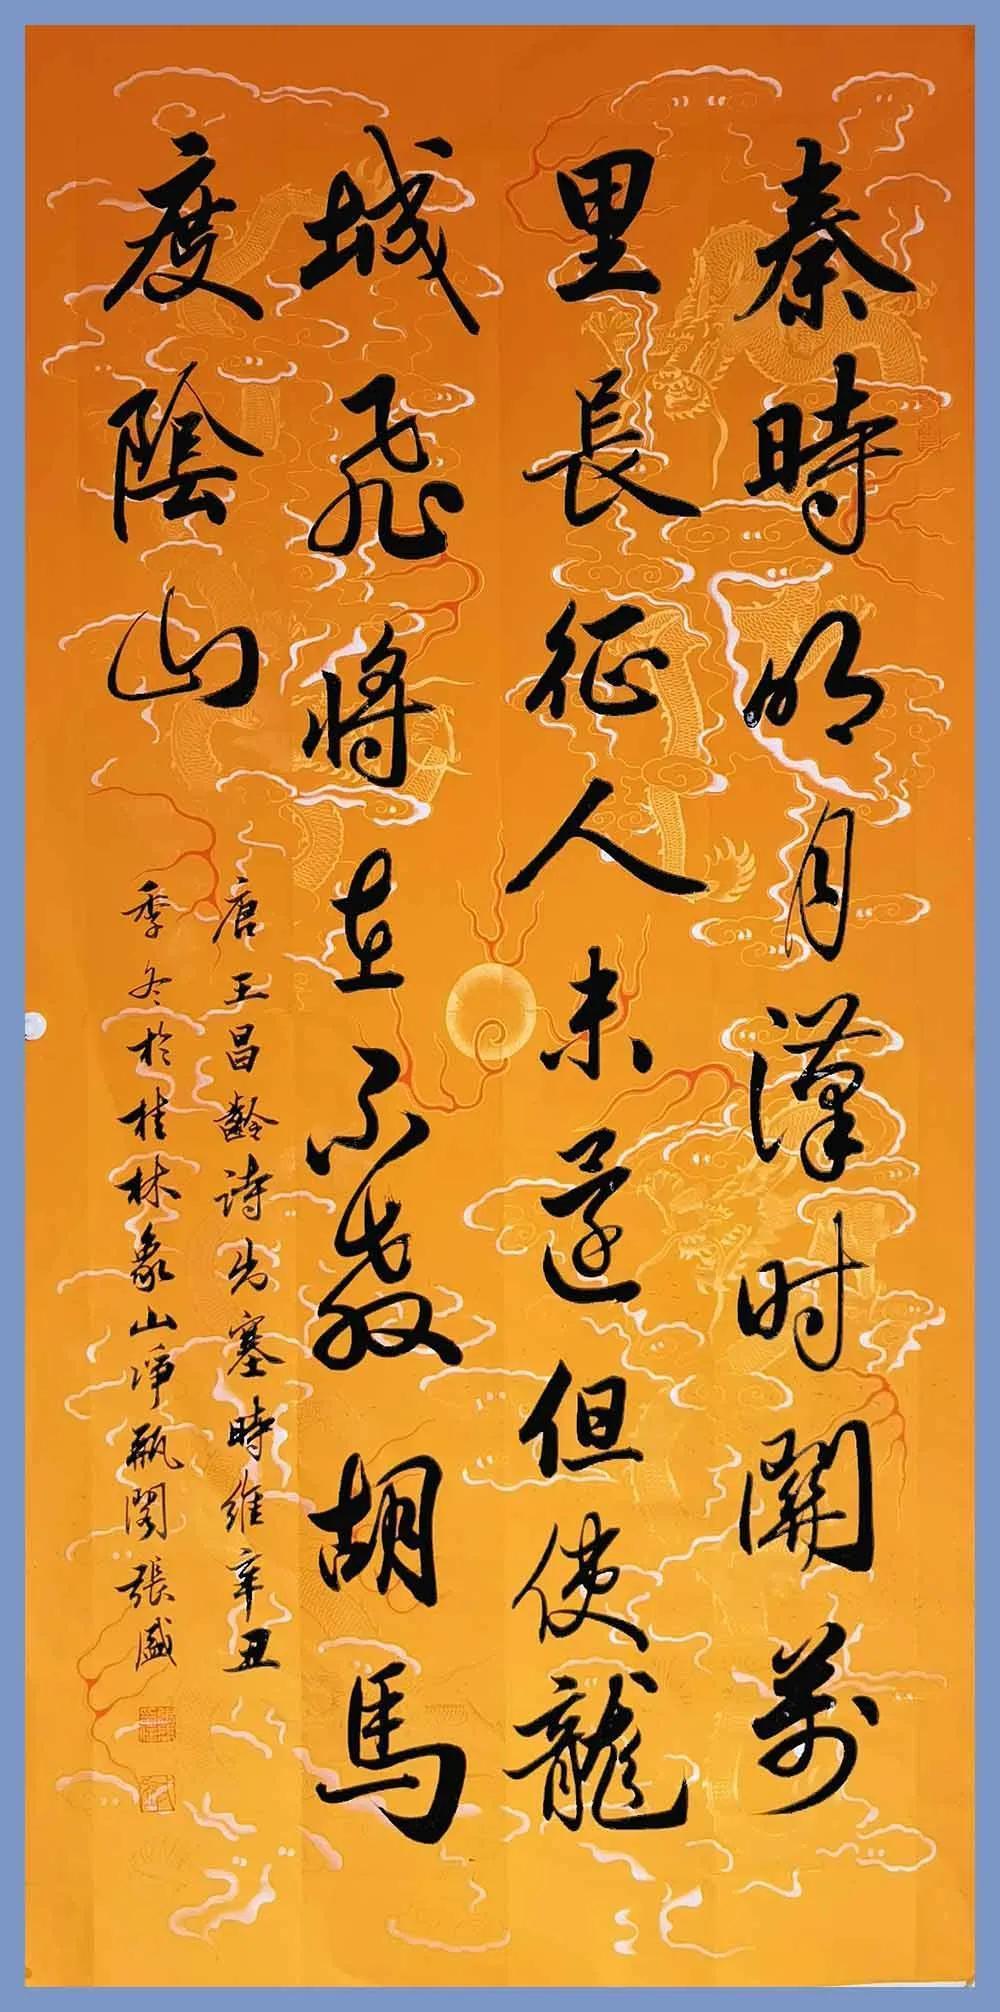 秦時明月漢时關萬
里長征人未還但使龍
城飛將在不教胡馬
度陰山
唐王昌齡诗出塞時維辛丑
季冬於桂林象山淨瓶閣張盛